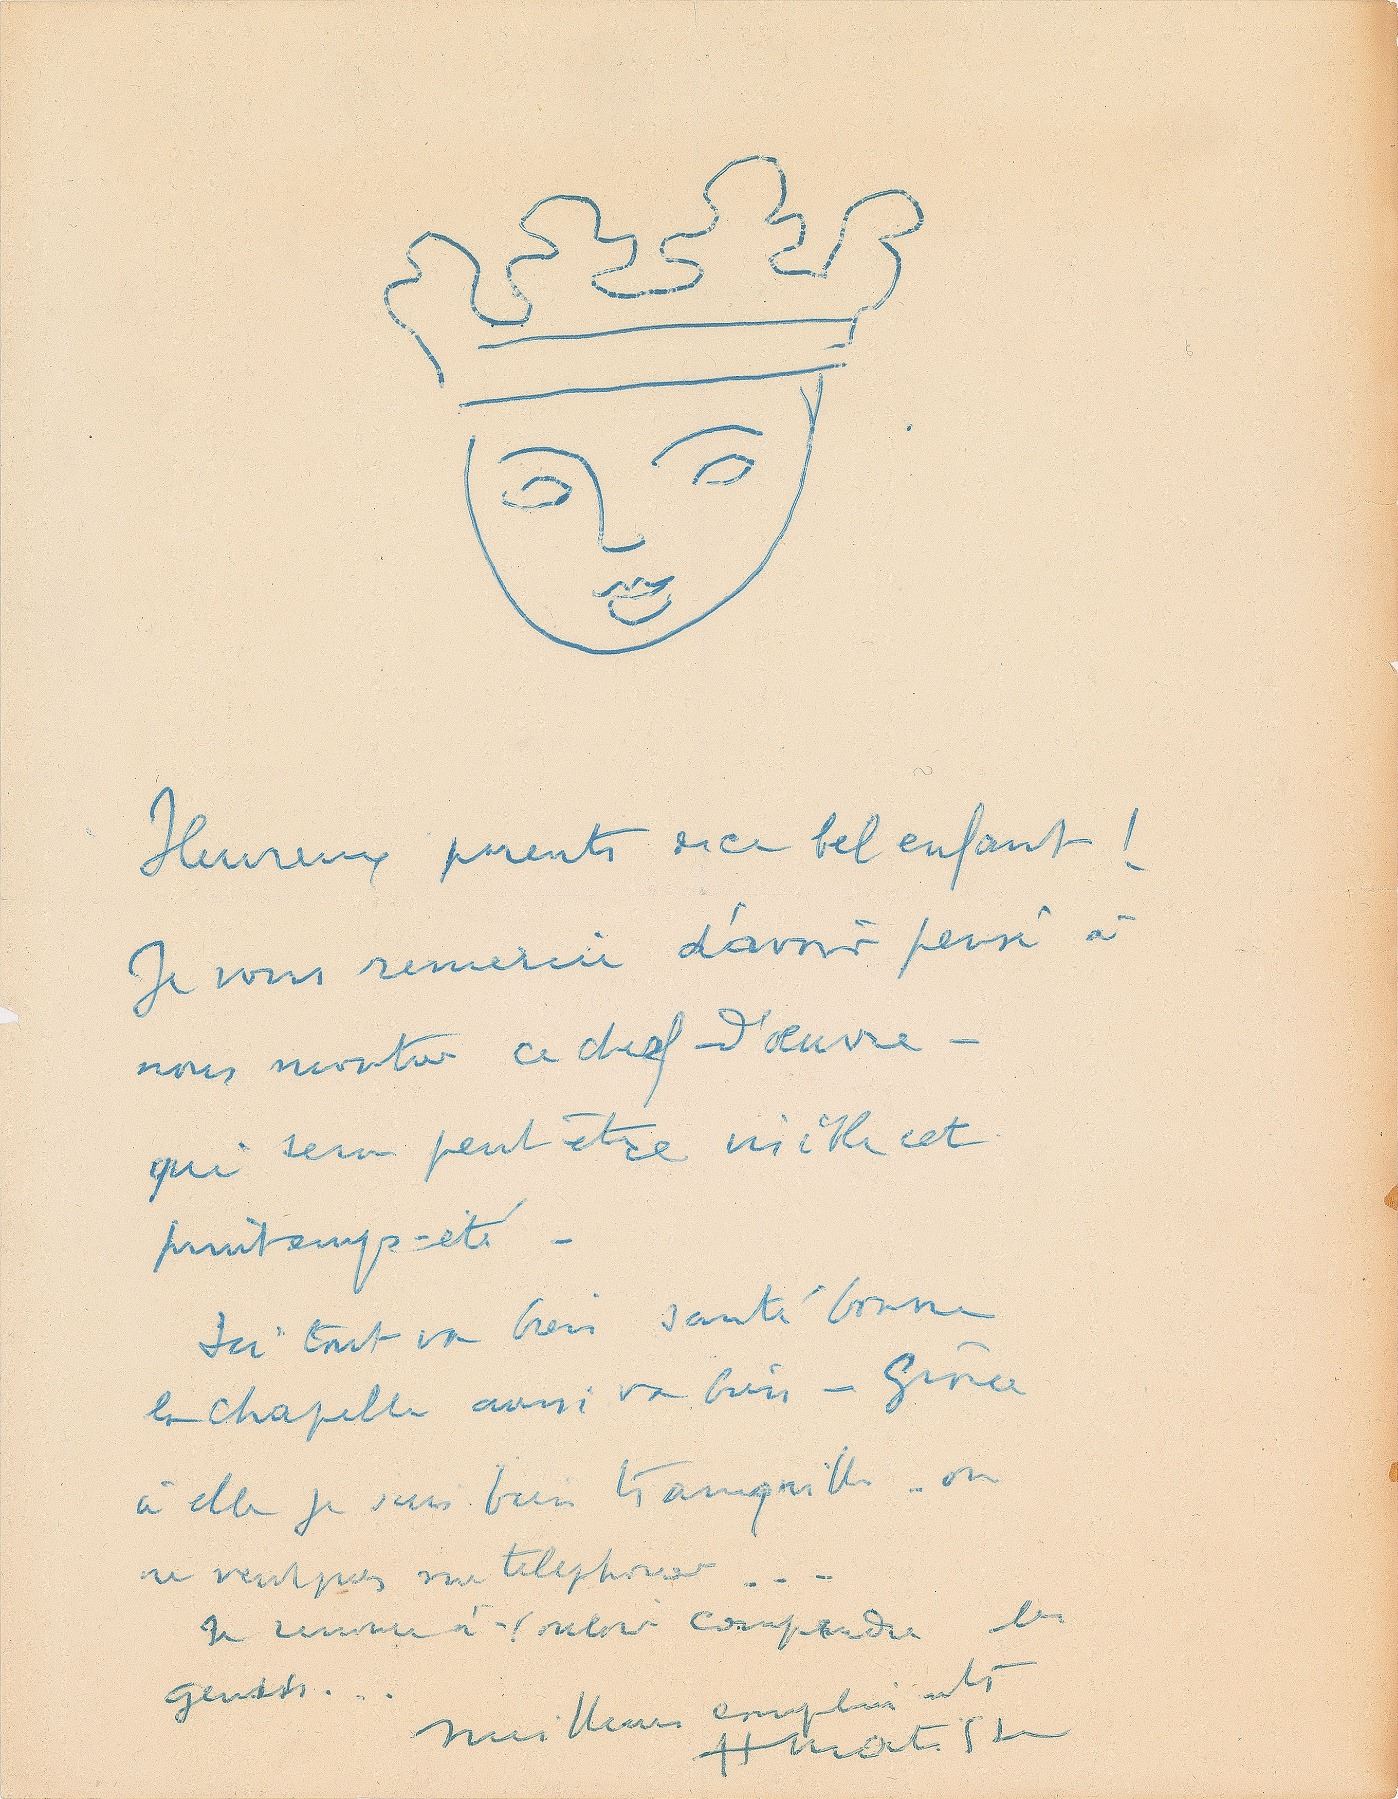 Heureux parents de ce bel enfant !
Je vous remercie d'avoir pensé à
nous montrer ce chef-d'œuvre –
qui sera peut être cet
printemps-été –
Ici tout va bien santé bonne
la chapelle aussi va bien – Grâce
à elle je suis bien tranquille .. on
ne veut pas me telephoner ...
Je renonce à vouloir comprendre les
gens ...
meilleurs compliments
HMatisse